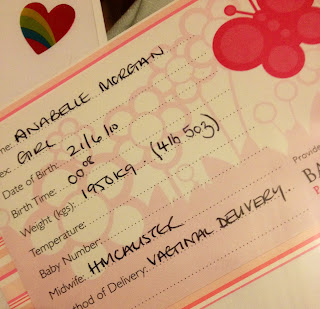 me: ANABELLE MORGAN
ex: GIRL
Date of Birth: 21/6/10
Birth Time: 0008
Weight (kgs): 1950KG. (4lb 5oz)
Temperature:
Baby Number:
Midwife: HMCALISTER
thod of Delivery: VAGINAL DELIVERY.
Provide
BA
P